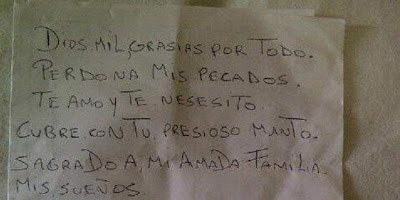 DIOS. MIL, GRASIAS POR TODO.
PERDONA MIS PECADOS.
TE AMO Y TE NESESITO.
CUBRE. CON TU, PRESIOSO MANTO.
SAGRADO A, MI AMADA FAMILIA.
MIS, SUEÑOS.